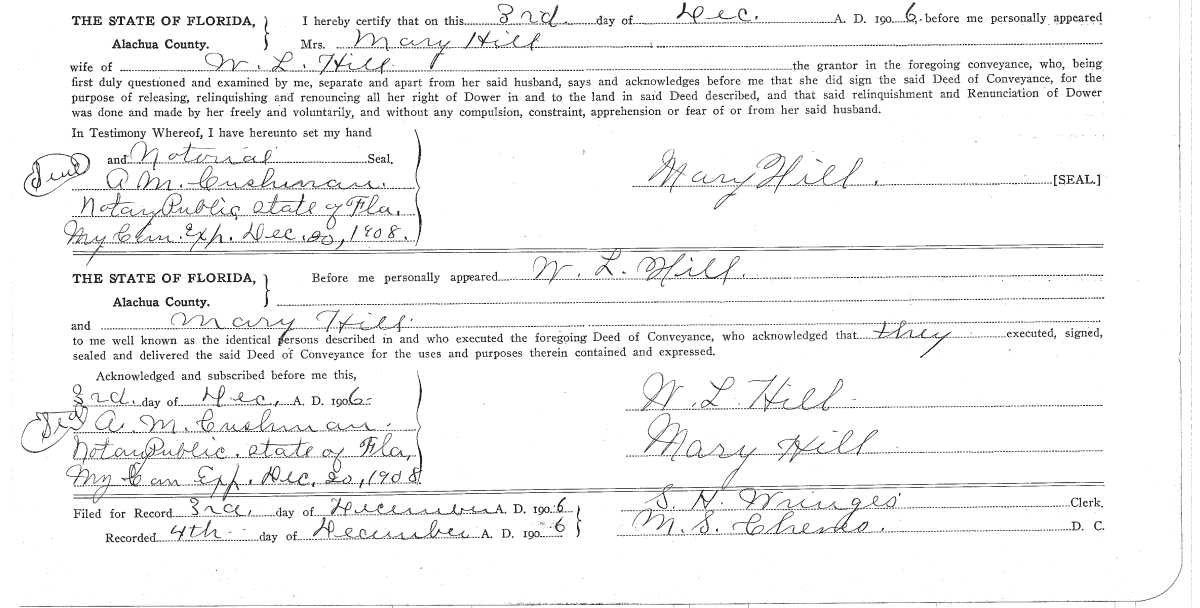 THE STATE OF FLORIDA, } I hereby certify that on this 3rd day of Dec. A. D. 1906, before me personally appeared
Alachua County. Mrs. Mary Hill
wife of W. L. Hill. the grantor in the foregoing conveyance, who, being
first duly questioned and examined by me, separate and apart from her said husband, says and acknowledges before me that she did sign the said Deed of Conveyance, for the
purpose of releasing, relinquishing and renouncing all her right of Dower in and to the land in said Deed described, and that said relinquishment and Renunciation of Dower
was done and made by her freely and voluntarily, and without any compulsion, constraint, apprehension or fear of or from her said husband.
In Testimony Whereof, I have hereunto set my hand
and Notorial Seal.
A. M. Cushman. Mary Hill. [SEAL.]
Notary Public, State of Fla.
My Com. Exp. Dec. 20, 1908.
THE STATE OF FLORIDA, } Before me personally appeared W. L. Hill.
Alachua County.
and Mary Hill.
to me well known as the identical persons described in and who executed the foregoing Deed of Conveyance, who acknowledged that they executed, signed,
sealed and delivered the said Deed of Conveyance for the uses and purposes therein contained and expressed.
Acknowledged and subscribed before me this,
3rd. day of Dec, A. D. 1906. W. L Hill
A. M. Cushman.
Notary Public. State of Fla, Mary Hill
My Com Exp. Dec. 20, 1908.
Filed for Record 3rd, day of December A. D. 1906 S. H. Clerk.
Recorded 4th day of December A. D. 1906 } M. S. D. C.